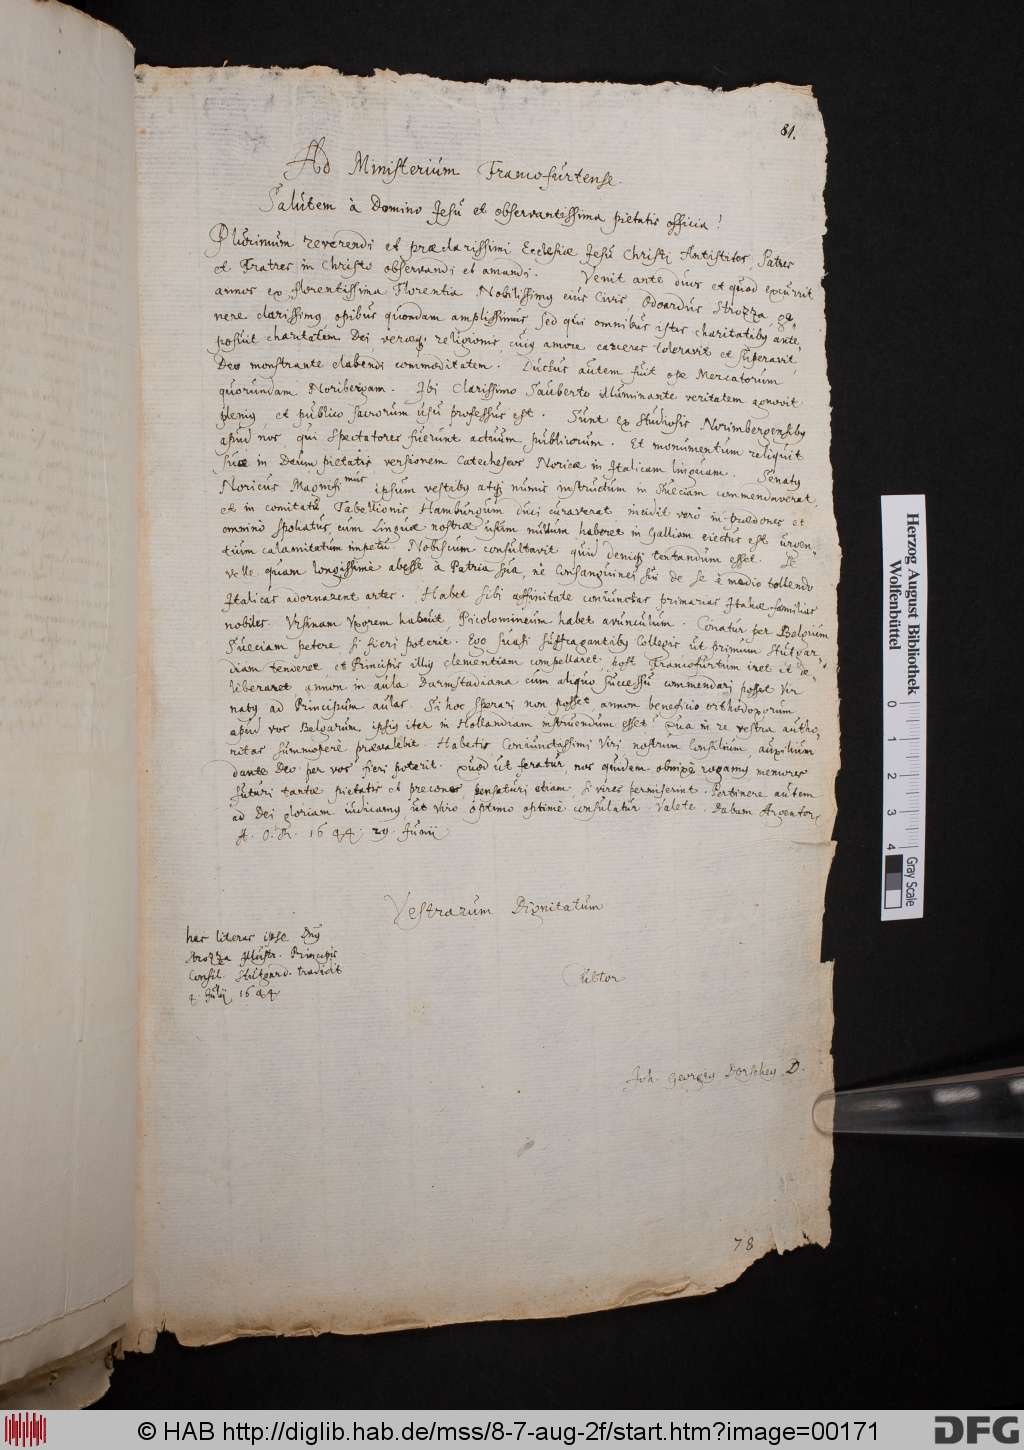 81.
Ad Ministerium Francofurtense.
Salutem à Domino Jesu et observantissima pietatis officia!
Plurimum reverendi et præclarissimi Ecclesiæ Jesu Christi Antistites, Patres
et Fratres in Christo observandi et amandi. Venit ante duos et quod excurrit
annos ex florentissima Florentia Nobilissimus eius Civis Odoardus Strozza ge
nere clarissimus opibus quondam amplissimus sed qui omnibus istis charitatibus ante,
posuit charitatem Dei veræq religionis, cuius amore carceres toleravit et superavit
Deo monstrante elabendi commoditatem. Ductus autem fuit ope Mercatorum
quorundam Noribergam. Ibi Clarissimo Sauberto illuminante veritatem agnovit
plenius et publico sacrorum usu professus est. Sunt ex studiosis Norimbergensibus
apud nos, qui spectatores fuerunt actuum publicorum. Et monumentum reliquit
suæ in Deum pietatis versionem Catecheseos Noricæ in Italicam linguam. Senatus
Noricus Magnificmus ipsum vestibus atq numis instructum in Sueciam commendaverat
et in comitatu Tabellionis Hamburgum duci curaverat incidit vero in prædones et
omnino spoliatus, cum Linguæ nostræ usum nullum haberet in Galliam eiectus est urgen„
tium calamitatum impetu. Nobiscum consultavit quid deniq tentandum esset. Se
velle quam longissime abesse à Patria sua, ne Consanguinei sui de se è medio tollendo
Italicas adornarent artes. Habet sibi affinitate coniunctas primarias Italiæ familias
nobiles. Ursinam Uxorem habuit, Picolomineum habet avunculum. Conatur per Belgium
Sueciam petere, si fieri poterit. Ego suasi suffragantibus Collegis ut primum Stutgar
diam tenderet et Principis illius clementiam compellaret, post Francofurtum iret et de„
liberaret, annon in aula Darmstadiana cum aliquo successu commendari posset Vir
natus ad Principum aulas. Si hoc sperari non posset, annon beneficio orthodoxorum
apud vos Belgarum, ipsius iter in Hollandiam instruendum esset? Qua in re vestra autho,
ritas summopere prævalebit. Habetis Coniunctissimi Viri nostrum Consilium, auxilium
dante Deo per vos fieri poterit. Quod ut feratur, nos quidem obnixe rogamus, memores
futuri tantæ pietatis et precones, pensaturi etiam, si vires permiserint. Pertinere autem
ad Dei gloriam iudicamus, ut viro optimo optime consulatur. Valete. Dabam Argentor,
A. O. R. 1644. 29. Junii
Vestrarum Dignitatum
has literas ipse Dnus
Strozza Illustr. Principis
Consil. Stutgard. tradidit
4. Julij 1644
Cultor
Joh. Georgius Dorscheus D.
78
Herzog August Bibliothek
Wolfenbüttel
0 1 2 3 4
Gray Scale
© HAB http://diglib.hab.de/mss/8-7-aug-2f/start.htm?image=00171
DFG